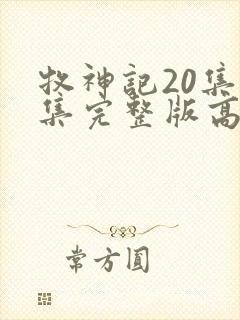 牧神记20集
集完整版高
常方圆